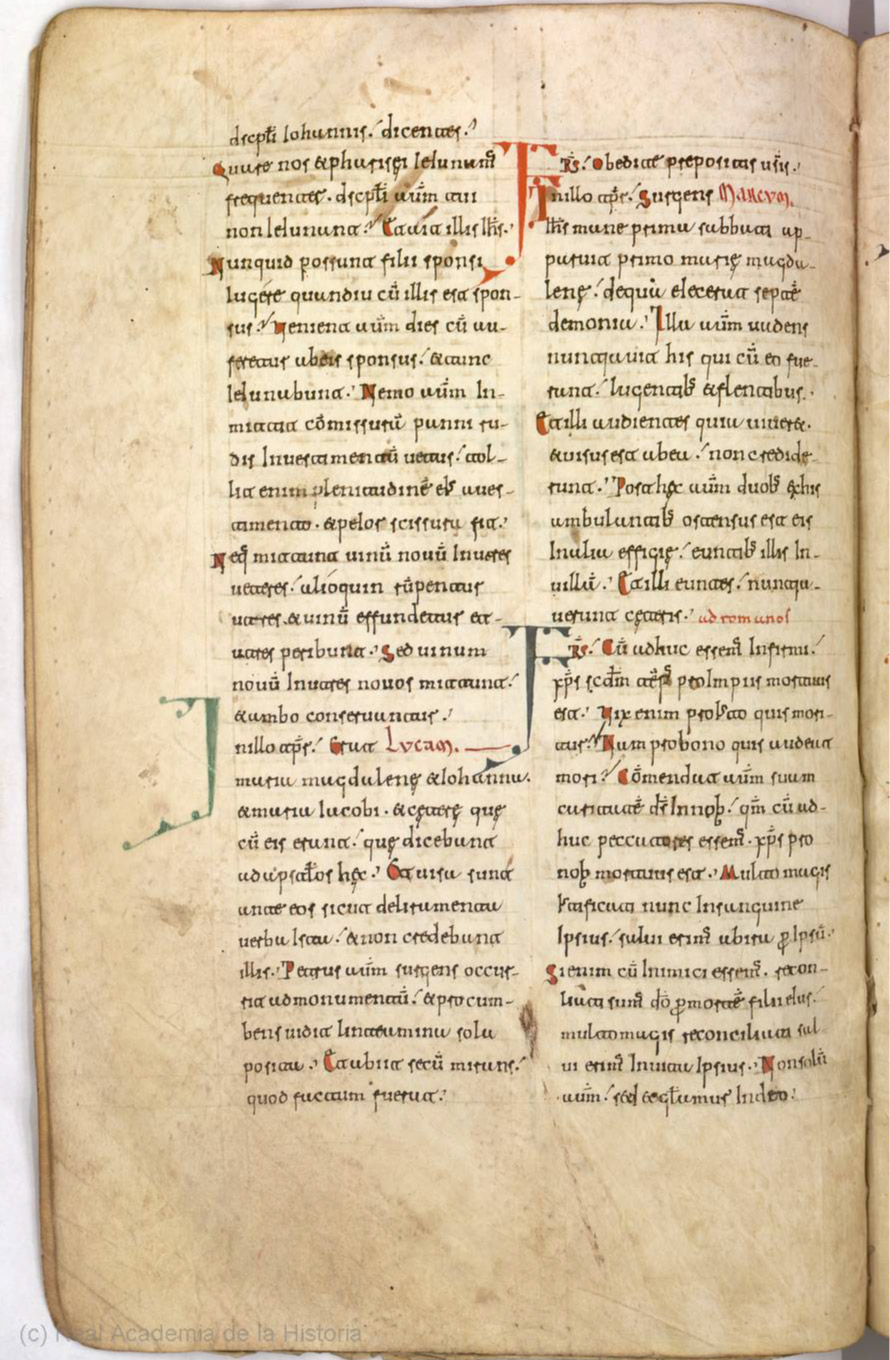 dscpłi Iohannis. dicentes.
Quare nos & pharisęi Ieiunam̄
frequenter. dscpłi aūm tui
non Ieiunant? Et ait illis Ihs̄.
Nunquid possunt filii sponsi
lugere quandiu cū illis est spon-
sus? Venient aūm dies cū au-
feretur ab eis sponsus. & tunc
Ieiunabunt. Nemo aūm In-
mittit cōmissurā panni ru-
dis Inuestimentū uetus. tol-
lit enim plenitudinē eīs a ues-
timento. & peior scissura fit.
Neq̄ mittunt uinū nouū Inutres
ueteres. alioquin rūpentur
utres & uinū effundetur et
utres peribunt. Sed uinum
nouū Inutres nouos mittunt.
& ambo conseruantur.
In illo tp̄r. Erat Lvcam.
maria magdalenę & Iohanna.
& maria Iacobi. & ceterę quę
cū eis erant. quę dicebant
ad apsałos hęc. Et uisa sunt
ante eos sicut deliramenta
uerba Ista. & non credebant
illis. Petrus aūm surgens occur-
rit ad monumentū. & procum-
bens uidit linteamina sola
posita. Et abiit secū mirans.
quod factum fuerat.
FR̄S. Obedite prepositis ur̄is.
In illo tp̄r. Surgens Marcvm.
Ihs̄ mane prima sabbati ap-
paruit primo marię magda-
lenę. de qua eiecerat septē
demonia. Illa aūm uadens
nuntiauit his qui cū eo fue-
rant. lugentib; & flentibus.
Et illi audientes quia uiueret.
& uisus est ab ea. non credide-
runt. Post hęc aūm duob; ex his
ambulantib; ostensus est eis
In alia effigie. euntib; illis In-
uillā. Et illi euntes. nuntia-
uerunt cęteris. ad romanos
FR̄S. Cū adhuc essem̄ Infirmi.
xp̄s scd̄m tēp̄s pro Impiis mortuus
est. Vix enim pro Isto quis mori-
tur. Nam pro bono quis audeat
mori? Cōmendat aūm suam
caritatē d̄s In nob̄. qm̄ cū ad-
huc peccatores essem̄. xp̄s pro
nob̄ mortuus est. Multo magis
Iustificati nunc Insanguine
Ipsius. salui erim̄ ab ira p̄ Ipsū.
Si enim cū Inimici essem̄. recon-
liati sum̄ dō p̄ mortē filii eius.
multo magis reconciliati sal-
ui erim̄ In uita Ipsius. Non solū
aūm. sed & głamur In deo.
(c) Real Academia de la Historia